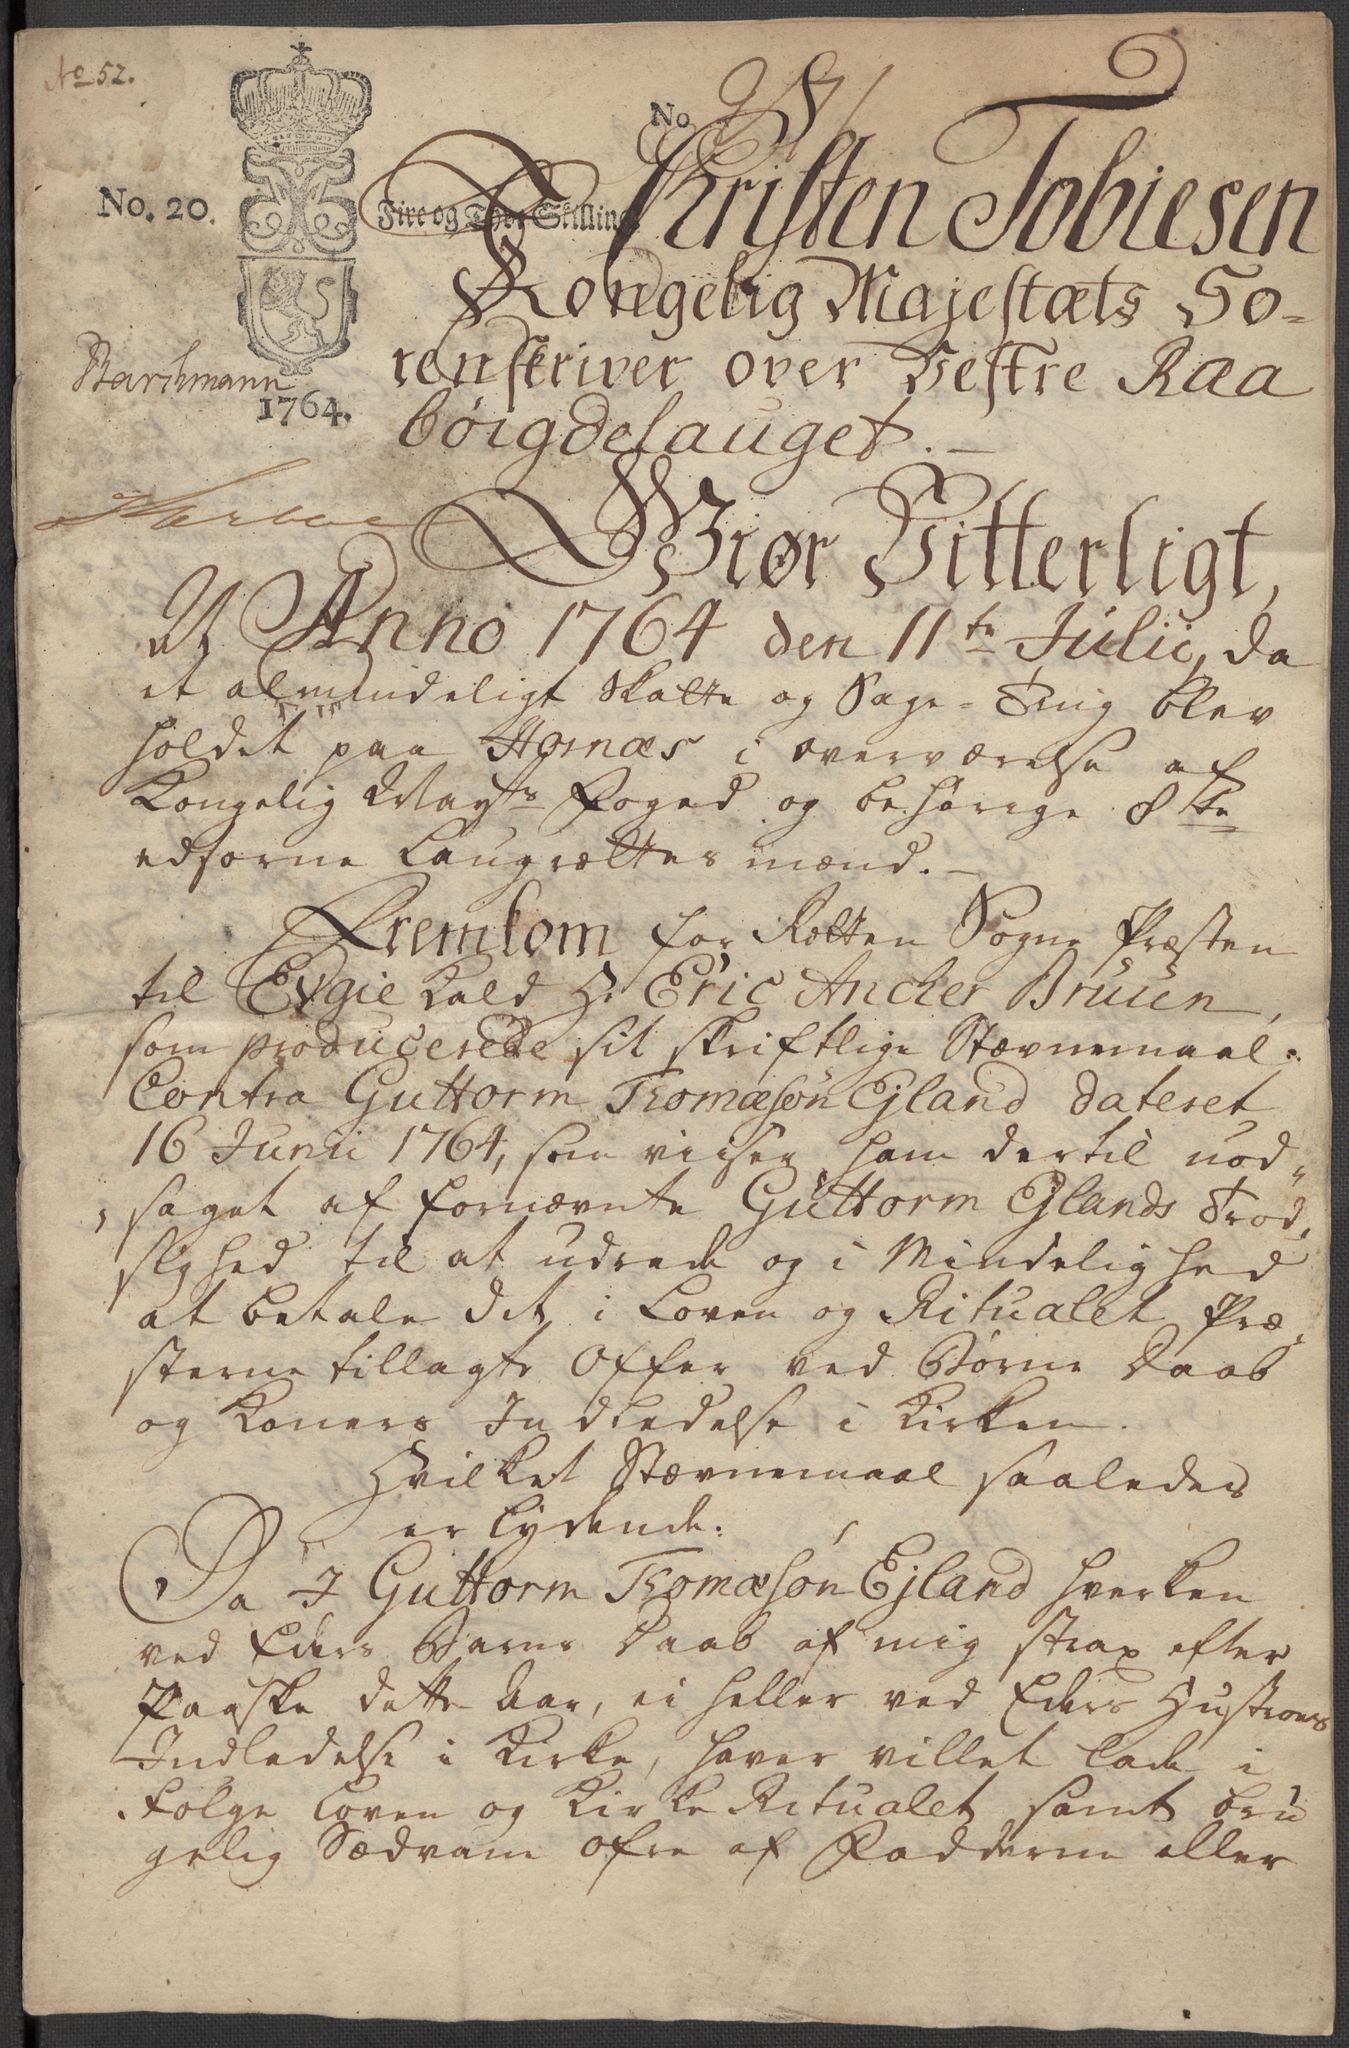 No 52.
No
No. 20.
Fire og Tyve Skilling
Christen Tobiesen
Kongelig Majestæts So-
renskriver over Vestre Raa
böigdelauget.
Barchmann
1764.
Giør Vitterligt,
At Anno 1764 den 11te Julii, da
et almindeligt Skatte og Sage-Ting blev
holdet paa Hornæs i overværelse af
Kongelig Mayts Foged og behörige 8te
edsorne Laugrættes mænd.
Fremkom for Rætten Sogne Præsten
til Evgie Kald Hr Eric Ancher Bruun,
som producerede sit skriftlige Stævnemaal.
Contra Guttorm Thomæsøn Ejland dateret
16 Junii 1764, som viiser ham dertil nød-
saget af fornævnte Guttorm Ejlands Trod,
sighed til at udrede og i Mindelighed
at betale det i Loven og Ritualet Præ,
sterne tillagte Offer ved Börne Daab
og Koners Indledelse i Kirken.
Hvilket Stævnemaal saaledes
er lydende:
Da I Guttorm Thomæsøn Ejland hverken
ved Eders Barns Daab af mig strax efter
Paaske dette Aar, ei heller ved Eders Hustroes
Indledelse i Kirke, haver villet lade i
Følge Loven og Kirke Ritualet samt bru
gelig Sædvane ofre af Fadderne eller